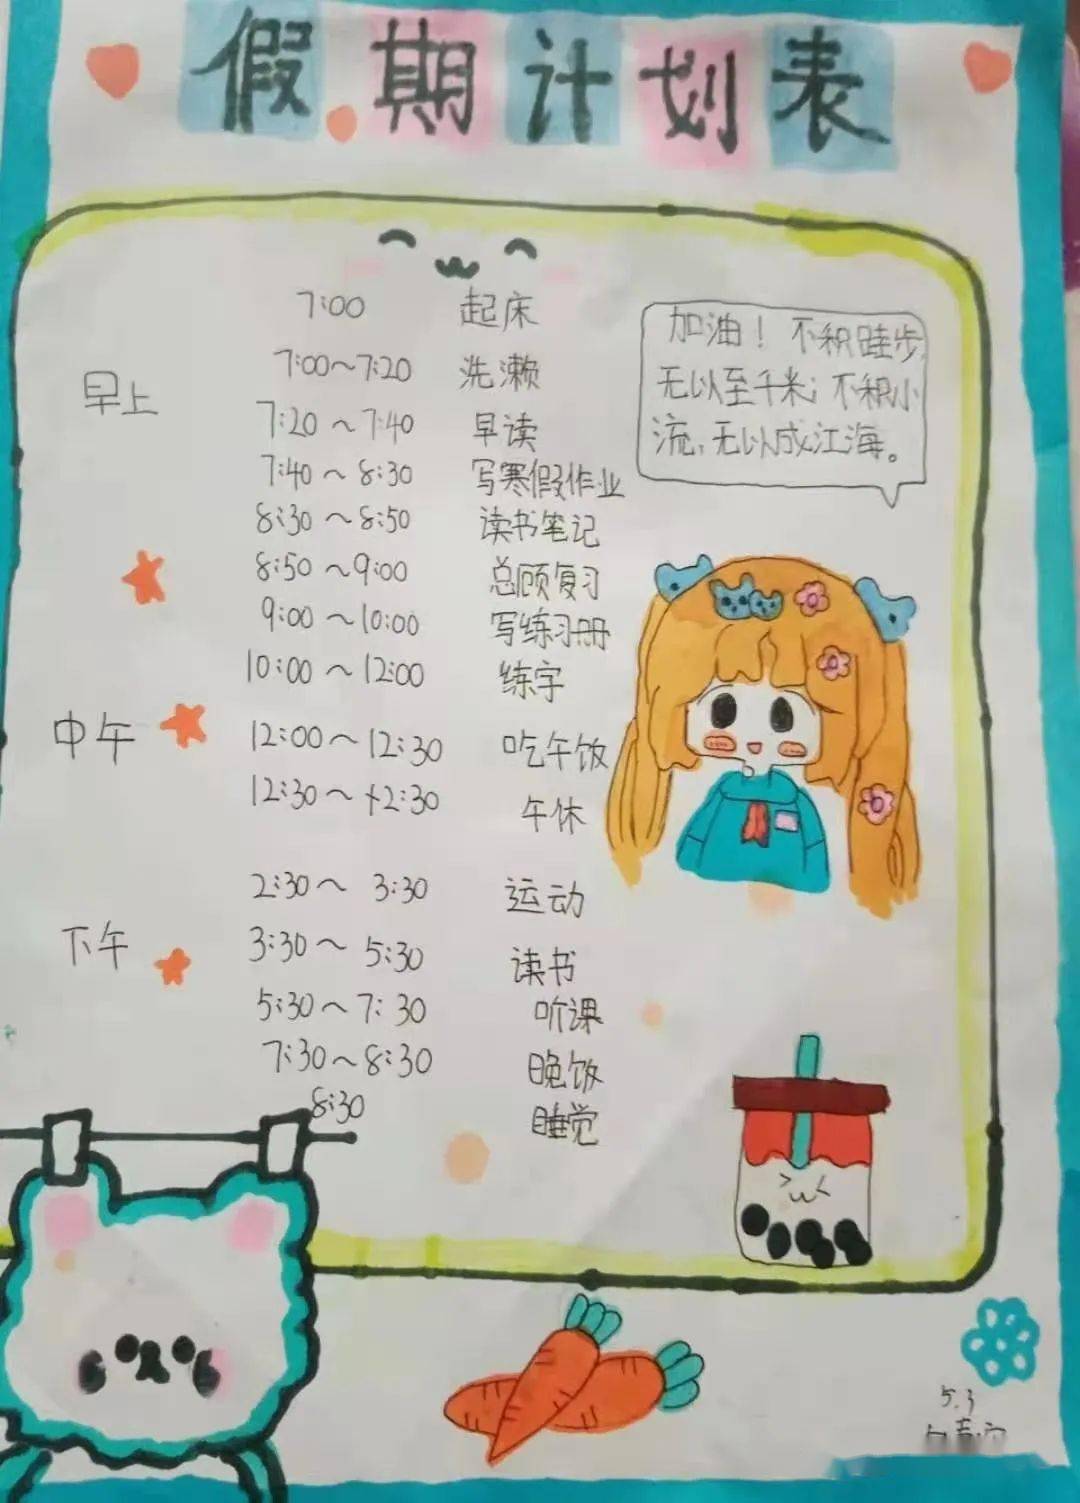 假期计划表
7:00 起床
7:00~7:20 洗漱
早上
7:20~7:40 早读
7:40~8:30 写寒假作业
8:30~8:50 读书笔记
8:50~9:00 总顾复习
9:00~10:00 写练习册
10:00~12:00 练字
中午
12:00~12:30 吃午饭
12:30~2:30 午休
2:30~3:30 运动
下午
3:30~5:30 读书
5:30~7:30 听课
7:30~8:30 晚饭
8:30 睡觉
加油！不积跬步,
无以至千米；不积小
流,无以成江海。
5.3